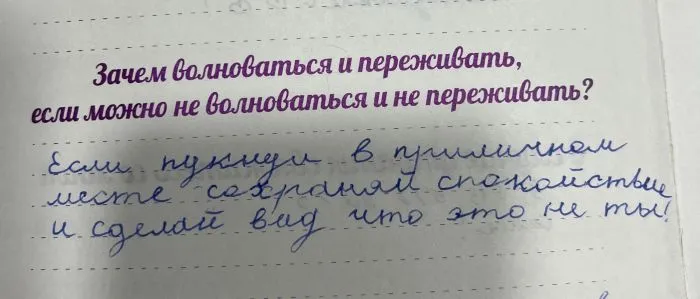 Зачем волноваться и переживать,
если можно не волноваться и не переживать?
Если пукнул в приличном
месте сохраняй спокойствие
и сделай вид что это не ты!